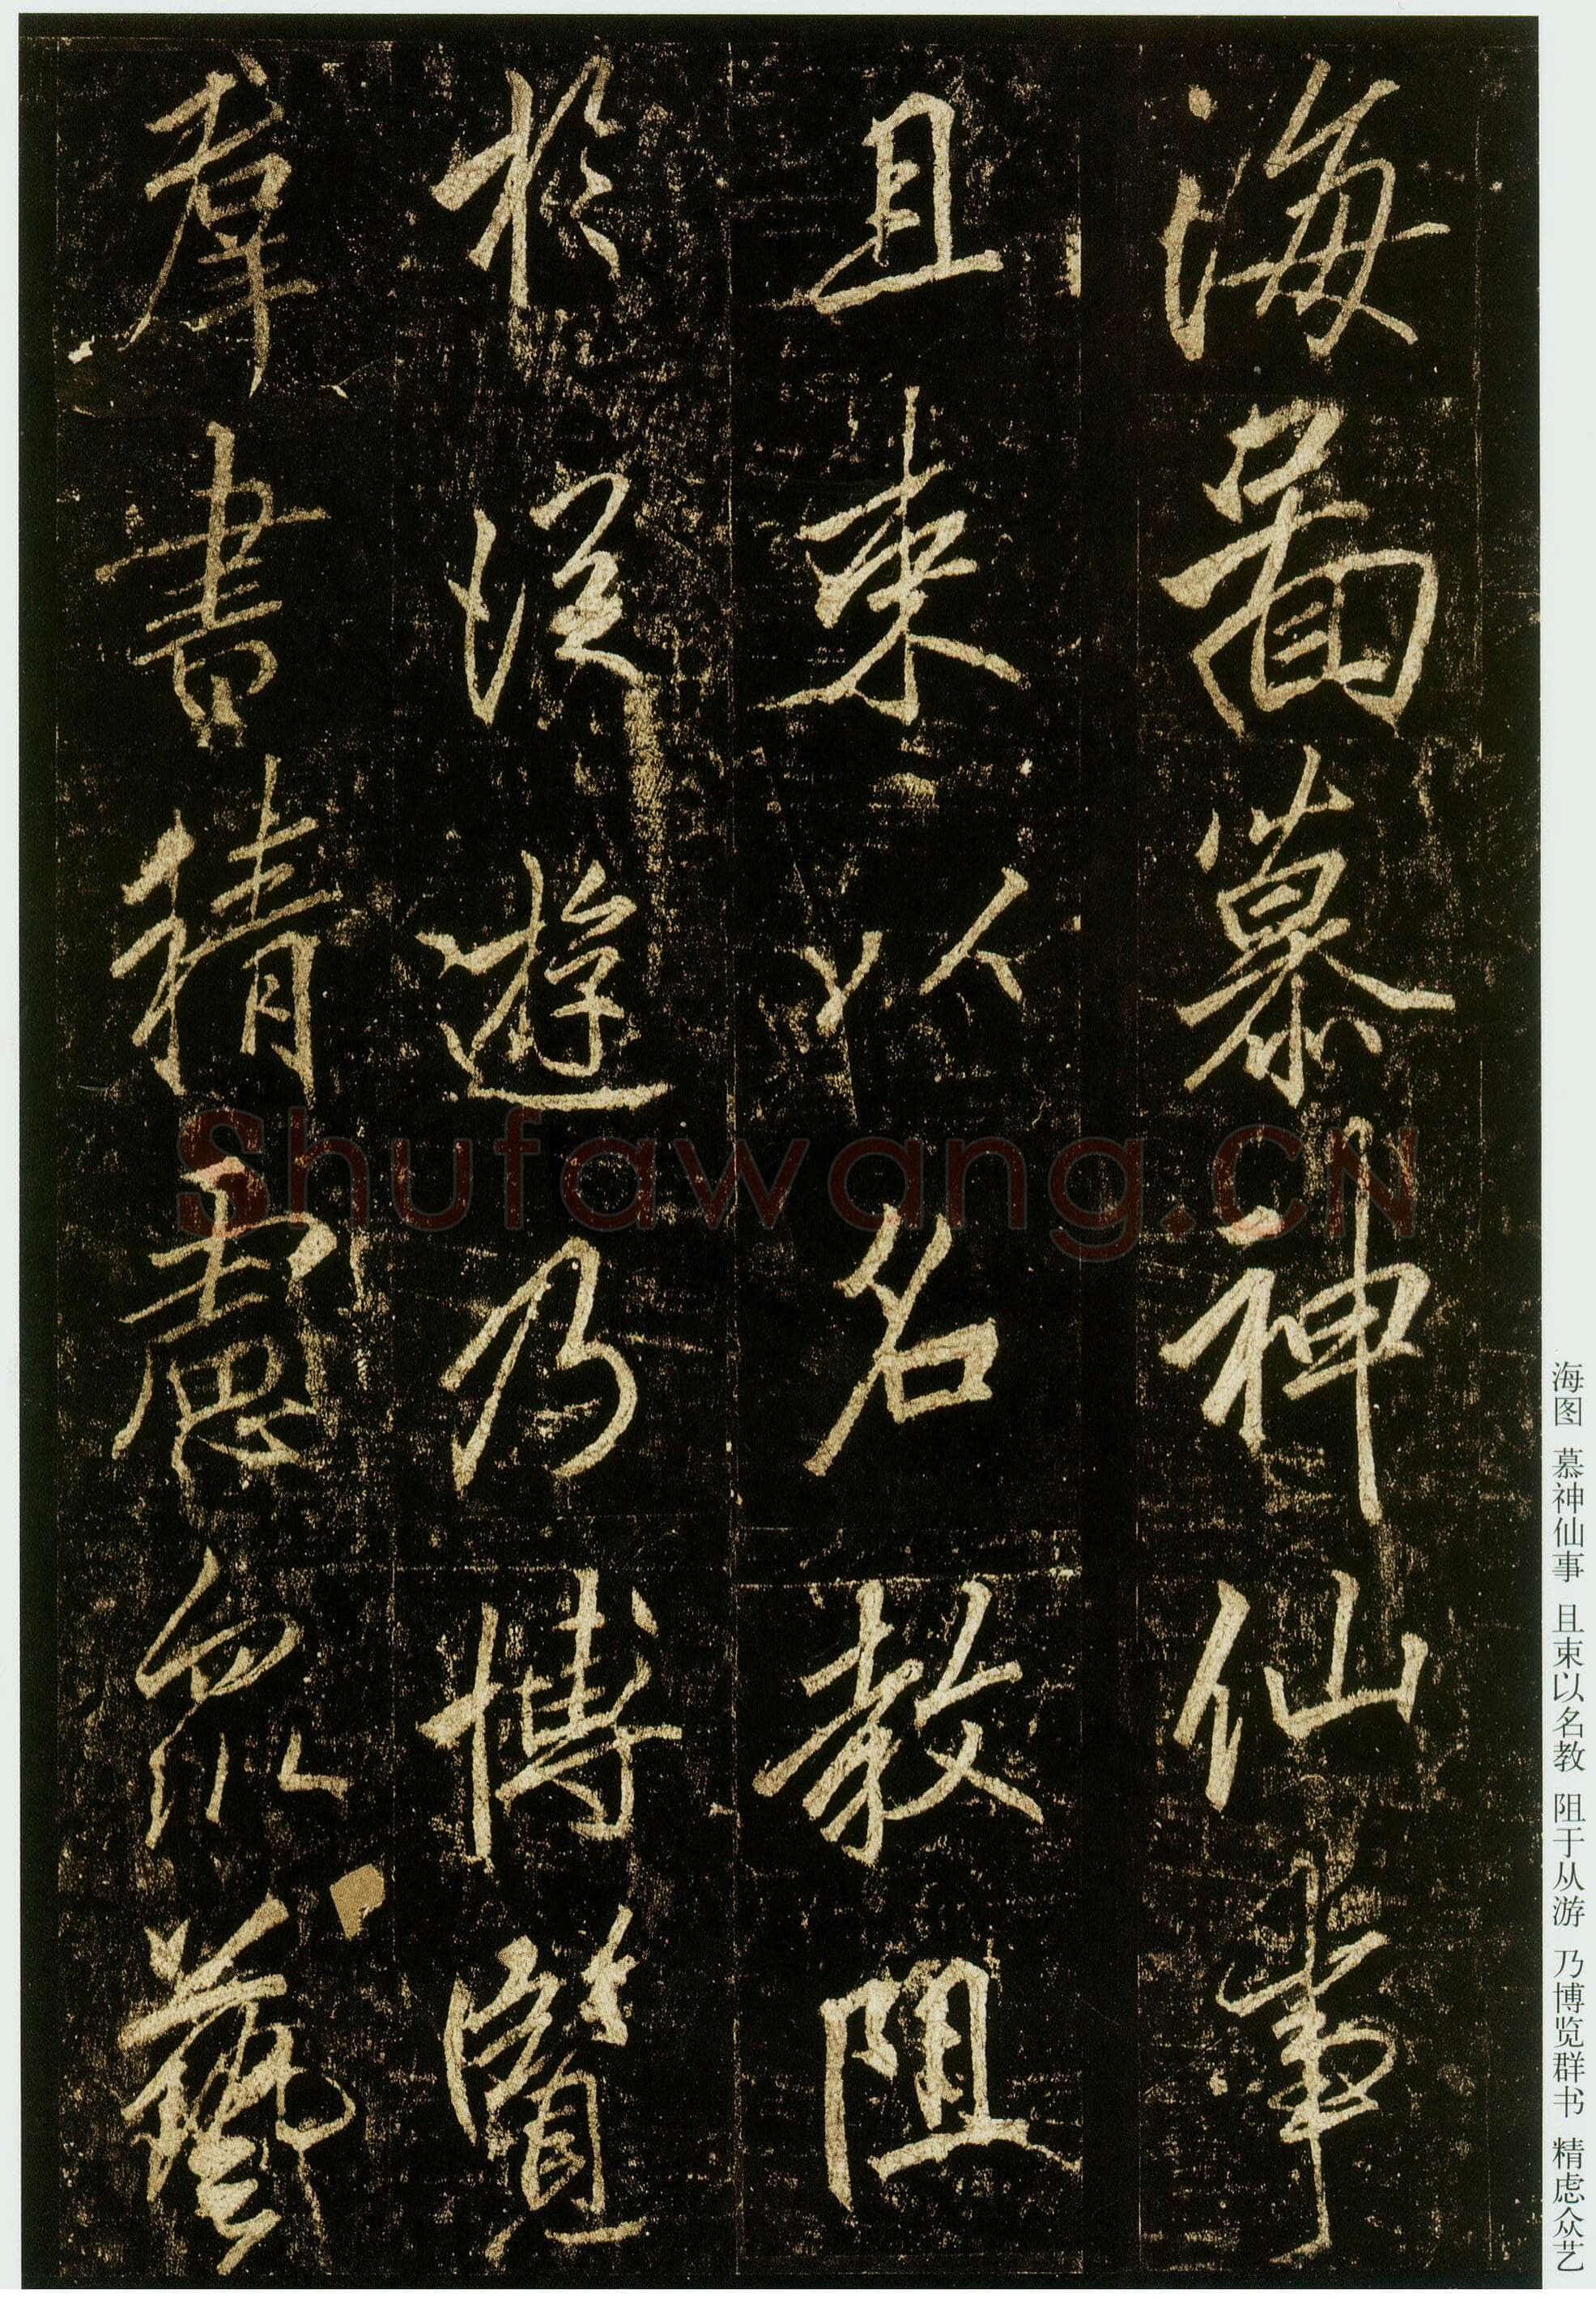 海啚慕神仙事
且束以名教阻
於從遊乃博覽
羣書精慮眾藝
海图 慕神仙事 且束以名教 阻于从游 乃博览群书 精虑众艺
Shufawang.CN